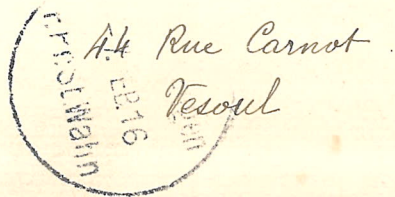 44 Rue Carnot.
Vesoul
EB 16